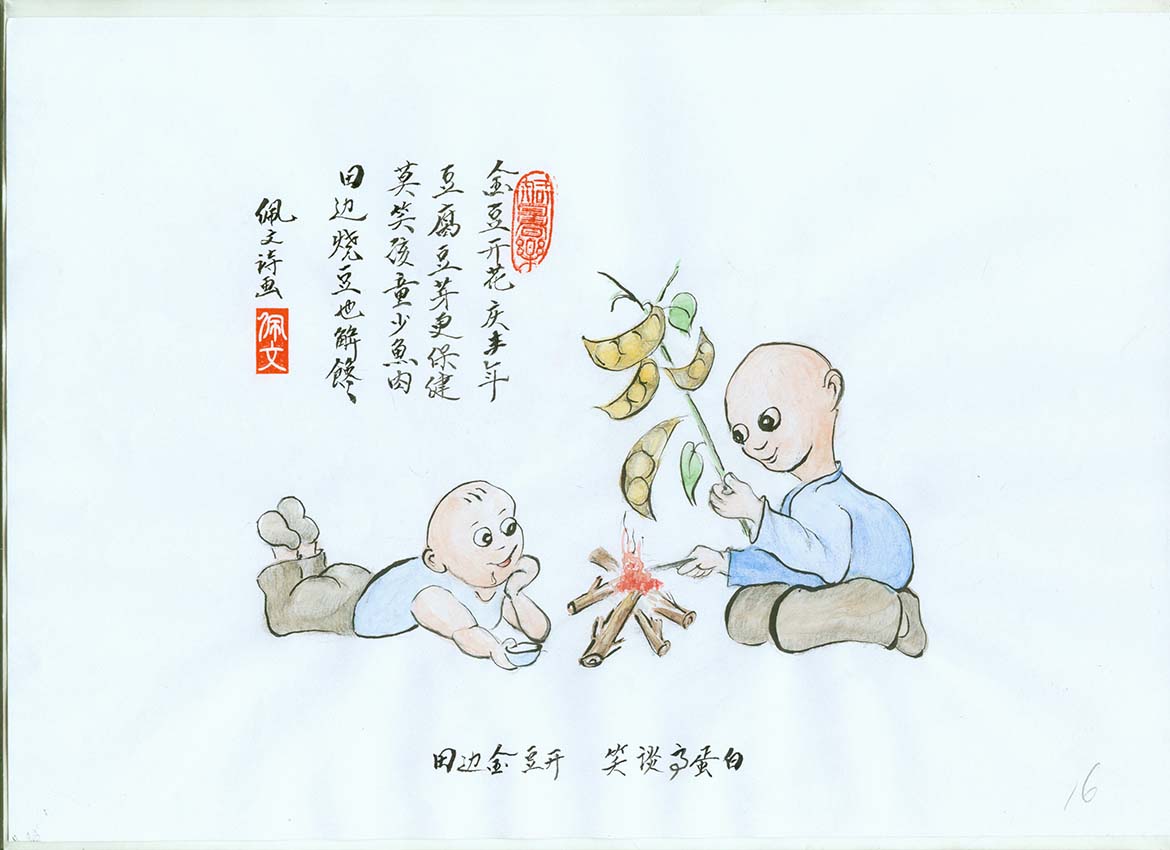 金豆开花庆丰年
豆腐豆芽更保健
莫笑孩童少魚肉
田边烧豆也解馋
佩文诗画
佩文
田边金豆开 笑谈高蛋白
16